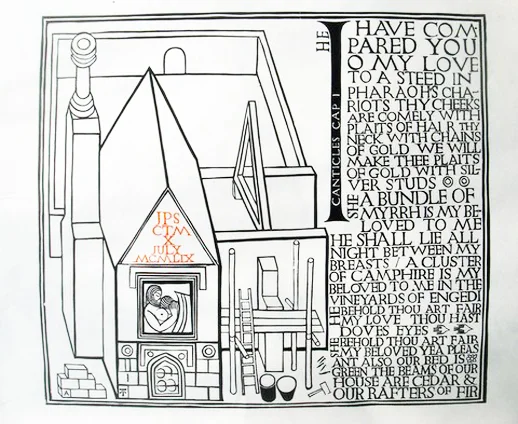 JPS
CTM
X
JULY
MCMLIX
A
T
CANTICLES CAP I
HE
I HAVE COM
PARED YOU
O MY LOVE
TO A STEED IN
PHARAOH'S CHA-
RIOTS THY CHEEKS
ARE COMELY WITH
PLAITS OF HAIR THY
NECK WITH CHAINS
OF GOLD WE WILL
MAKE THEE PLAITS
OF GOLD WITH SIL-
VER STUDS
SHE
A BUNDLE OF
MYRRH IS MY BE-
LOVED TO ME
HE SHALL LIE ALL
NIGHT BETWEEN MY
BREASTS / A CLUSTER
OF CAMPHIRE IS MY
BELOVED TO ME IN THE
VINEYARDS OF ENGEDI
HE
BEHOLD THOU ART FAIR
MY LOVE THOU HAST
DOVES EYES
SHE
BEHOLD THOU ART FAIR
MY BELOVED YEA PLEAS
ANT ALSO OUR BED IS
GREEN THE BEAMS OF OUR
HOUSE ARE CEDAR &
OUR RAFTERS OF FIR